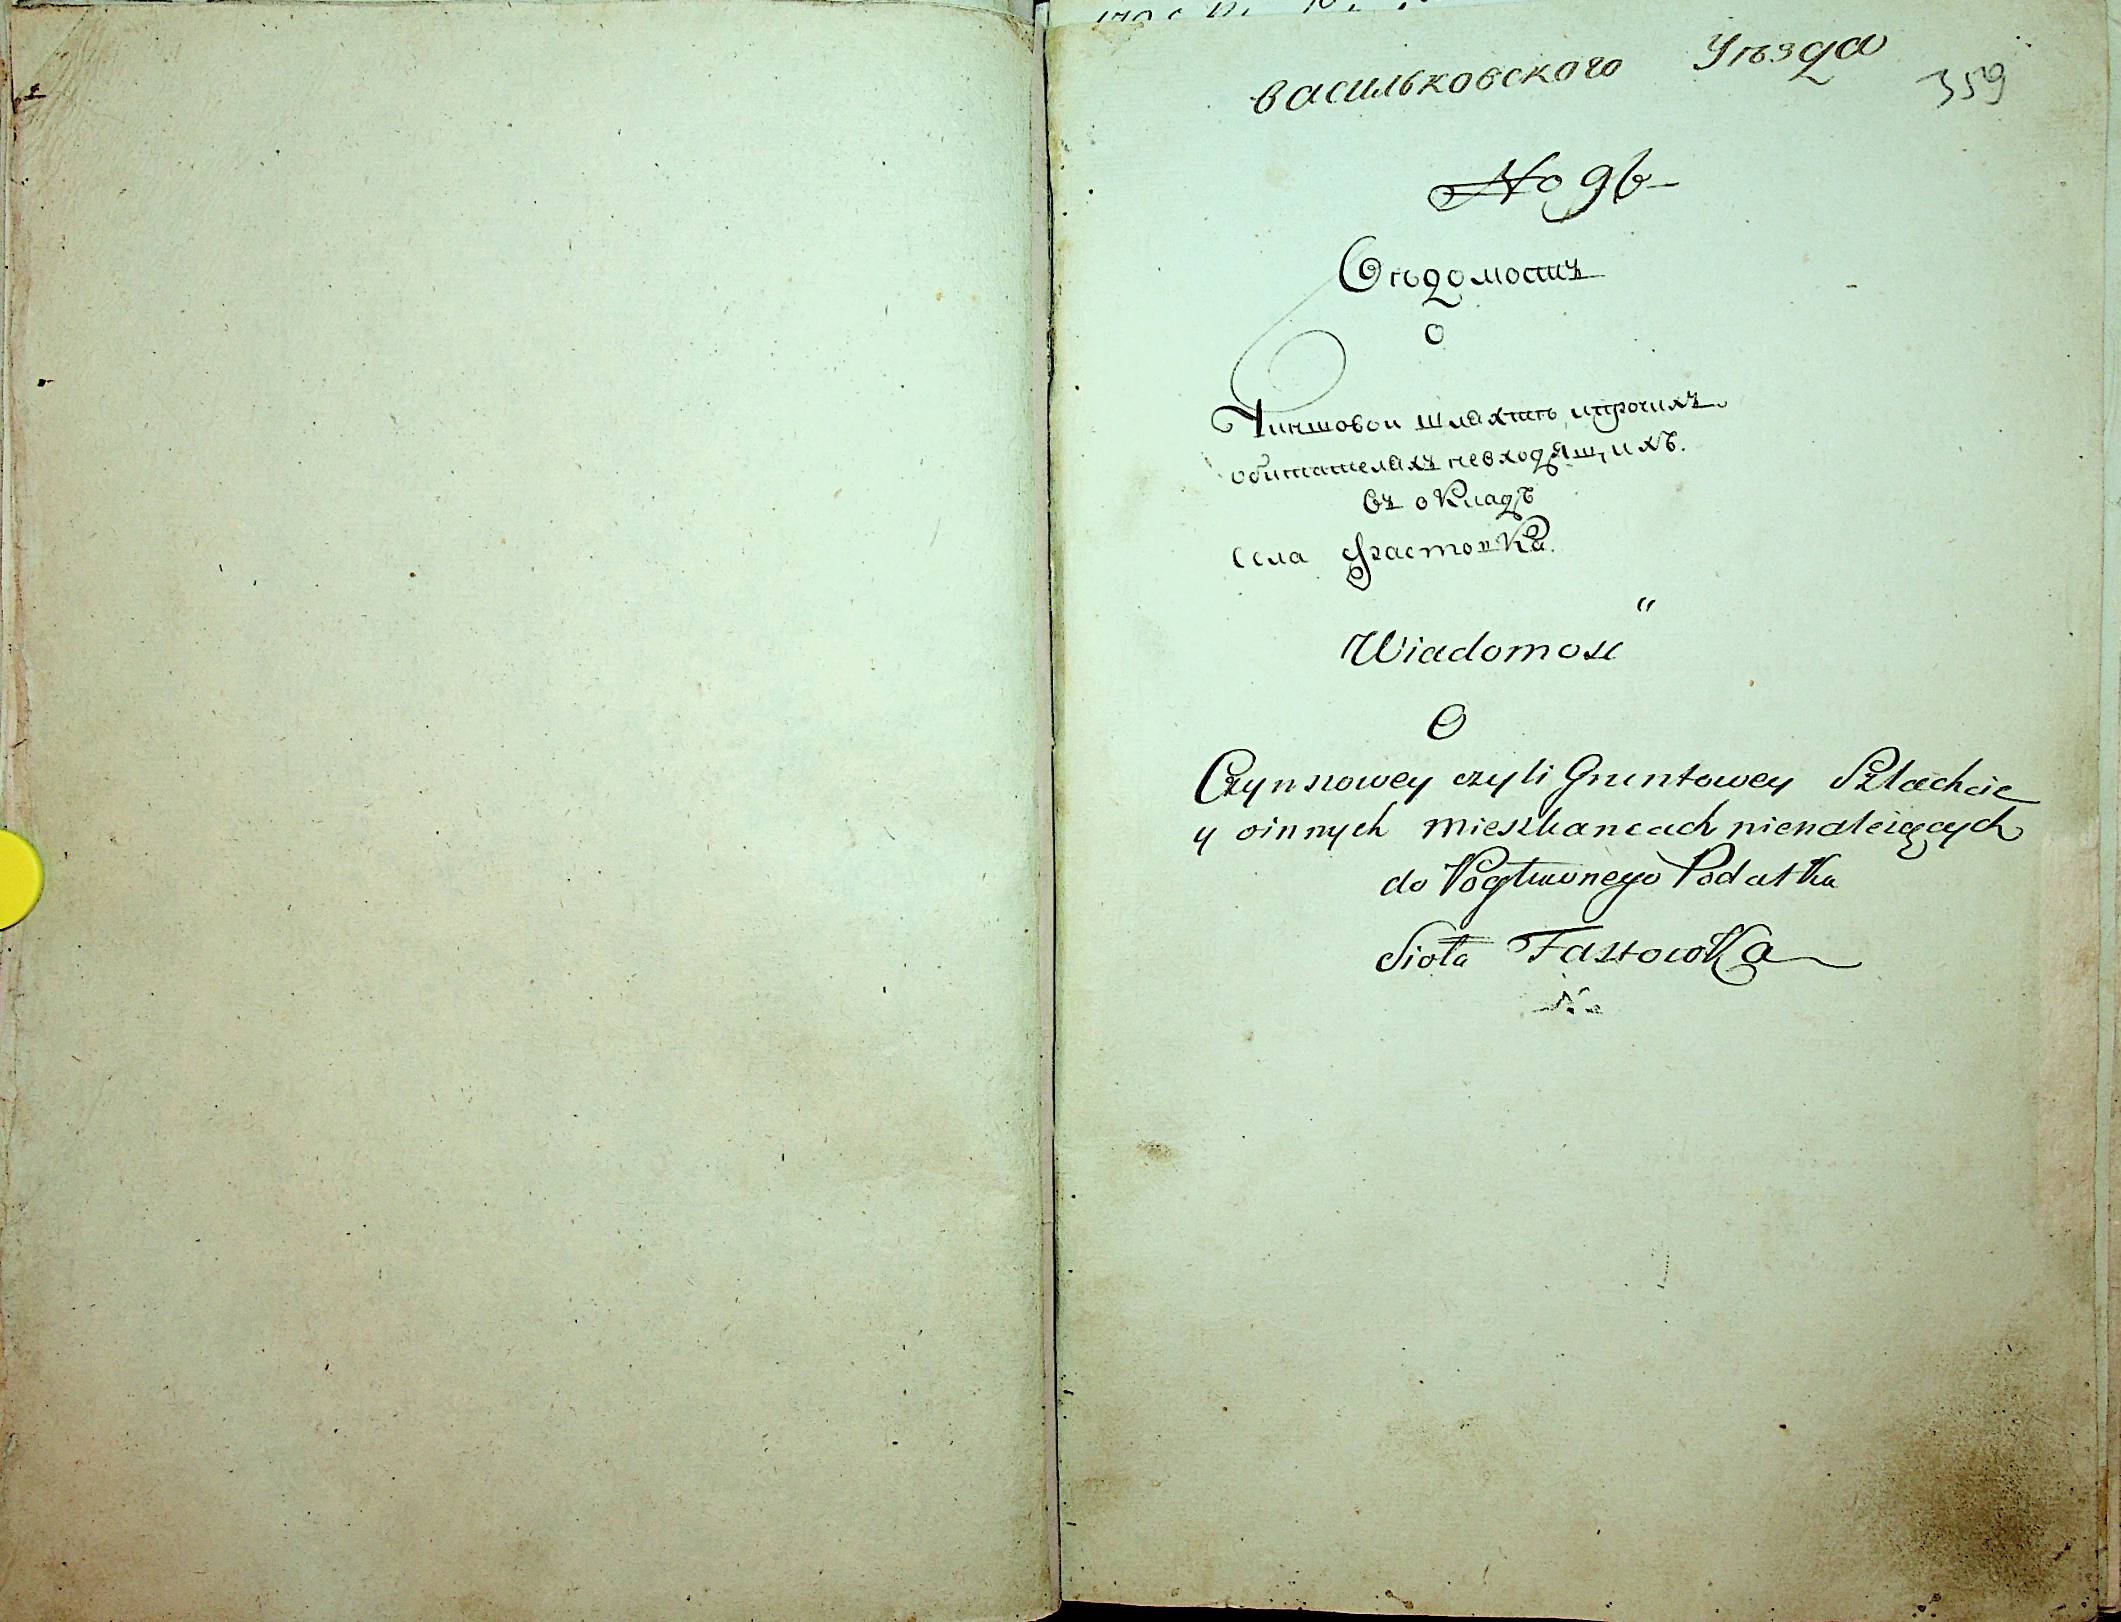 васильковского Уѣзда
359
No 96
Вѣдомостъ
О
Чиншовой шляхтѣ, ипрочихъ
обитателяхъ невходящихъ.
въ окладъ
села Фастовка.
Wiadomosc
O
Czynszowey czyli Gruntowey Szlachcie
y oinnych mieszkancach nienależących
do Pogłownego Podatku
Sioła Fastowka